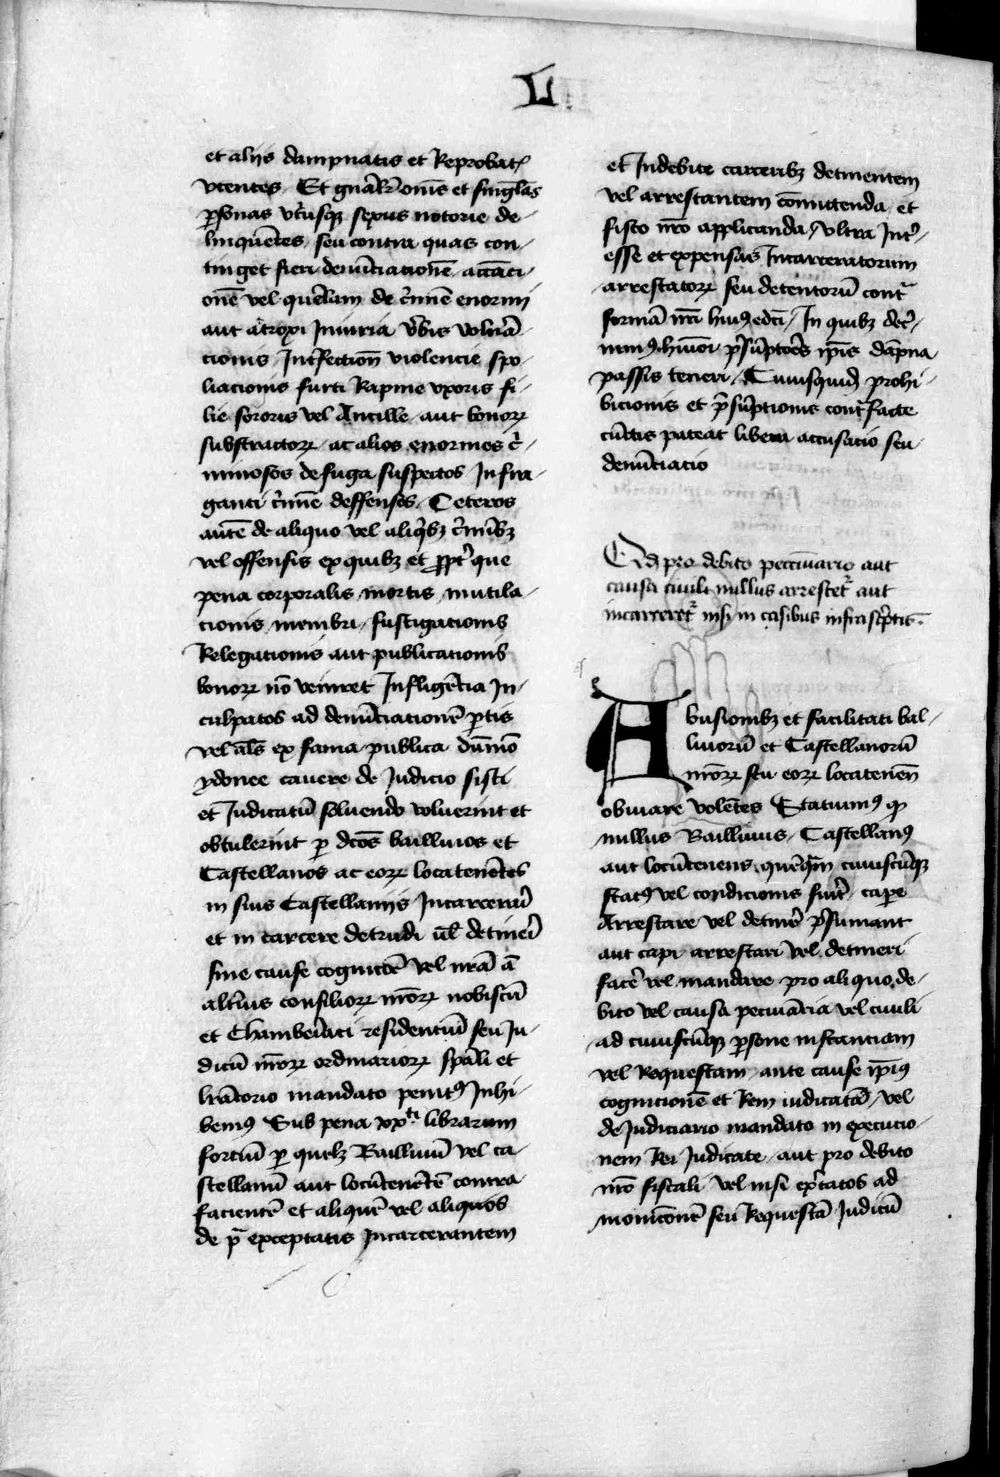 L
et alijs dampnatis et Reprobat(is)
vtentes Et gn̄alr̄ om̄s et singl̄as
ꝑsonas vtriusqꝫ sexus notorie de-
linquētes seu contra quas con-
tinget fieri denūciationē accūati-
onē vel querelam de c̄mine enormi
aut atroxi Iniuria v̄bis vulnerā-
cionis Intrfection̄ violencie spo-
liacionis furti Rapine vxoris fi-
lie sororis vel Ancille aut bonoꝝ
substractoꝝ ac alios enormes c̄-
minosos de fuga suspectos In fra-
ganti c̄mine deffensos Ceteros
autē de aliquo vel aliqͥbꝫ c̄minibꝫ
vel offensis ex quibꝫ et ꝓpt̄ que
pena corporalis mortis mutila-
cionis membri fustigationis
Relegationis aut publicationis
bonoꝝ nō veniret Infligēda in-
culpatos ad denūciationē ꝑtis
vel al̄s ex fama publica dūmō
ydonee cauere de Iudicio sisti
et Iudicatū soluendo voluerint et
obtulerint ꝑ dc̄os bailliuos et
Castellanos ac eoꝝ locatenētes
in suis Castellanijs Incarcerari
et in carcere detrudi vl̄ detineri
sine cause cognitōe vel nr̄a aut
alterius consilioꝝ nr̄oꝝ nobiscū
et Chamberiaci residentiū seu Iu-
dicū nr̄oꝝ ordinarioꝝ spāli et
lr̄atorio mandato penitꝰ Inhi-
bemꝰ Sub pena xxti librarum
fortiū ꝑ quēlꝫ Bailliuū vel ca-
stellanū aut locūtenētē contra
facientē et aliquē vel aliquos
de p̄ exceptatis Incarcerantem
et Indebite carceribꝫ detinentem
vel arrestantem cōmittenda et
fisco nr̄o applicanda Vltra Int̄-
esse et expensas Incarceratorum
arrestatoꝝ seu detentorū contͣ
formā nr̄i huiꝰ edc̄i In quibꝫ dec̄-
nimꝰ hmōi p̄sūptōēs ip̄is dāpna
passis teneri Cuiusquidꝫ prohi-
bicionis et p̄sūptionis contrafacte
cūctis pateat libera accusatio seu
denūciatio
Qd pro debito peccūniario aut
causa ciuili nullus arrestetr aut
incarceretr nisi in casibus infrascp̄tis
Abusionibꝫ et facilitati bal-
liuorū et Castellanorū
nr̄oꝝ seu eoꝝ locatenen̄
obuiare volētes Statuimꝰ qꝫ
nullus Bailliuus Castellanꝰ
aut locūtenens quēqͣm cuiuscūqꝫ
statꝰ vel condicionis fuerit capere
Arrestare vel detinere p̄sumant
aut capi arrestari vel detineri
facere vel mandare pro aliquo de-
bito vel causa pecuniaria vel ciuili
ad cuiuscūqꝫ ꝑsone instantiam
vel Requestam ante cause ip̄iꝰ
cognicionē et Rem iudicatā vel
de Iudiciario mandato in execucio-
nem Rei Iudicate aut pro debito
nr̄o fiscali vel nisi exp̄tatos ad
monicōnē seu Requestā Iudicū